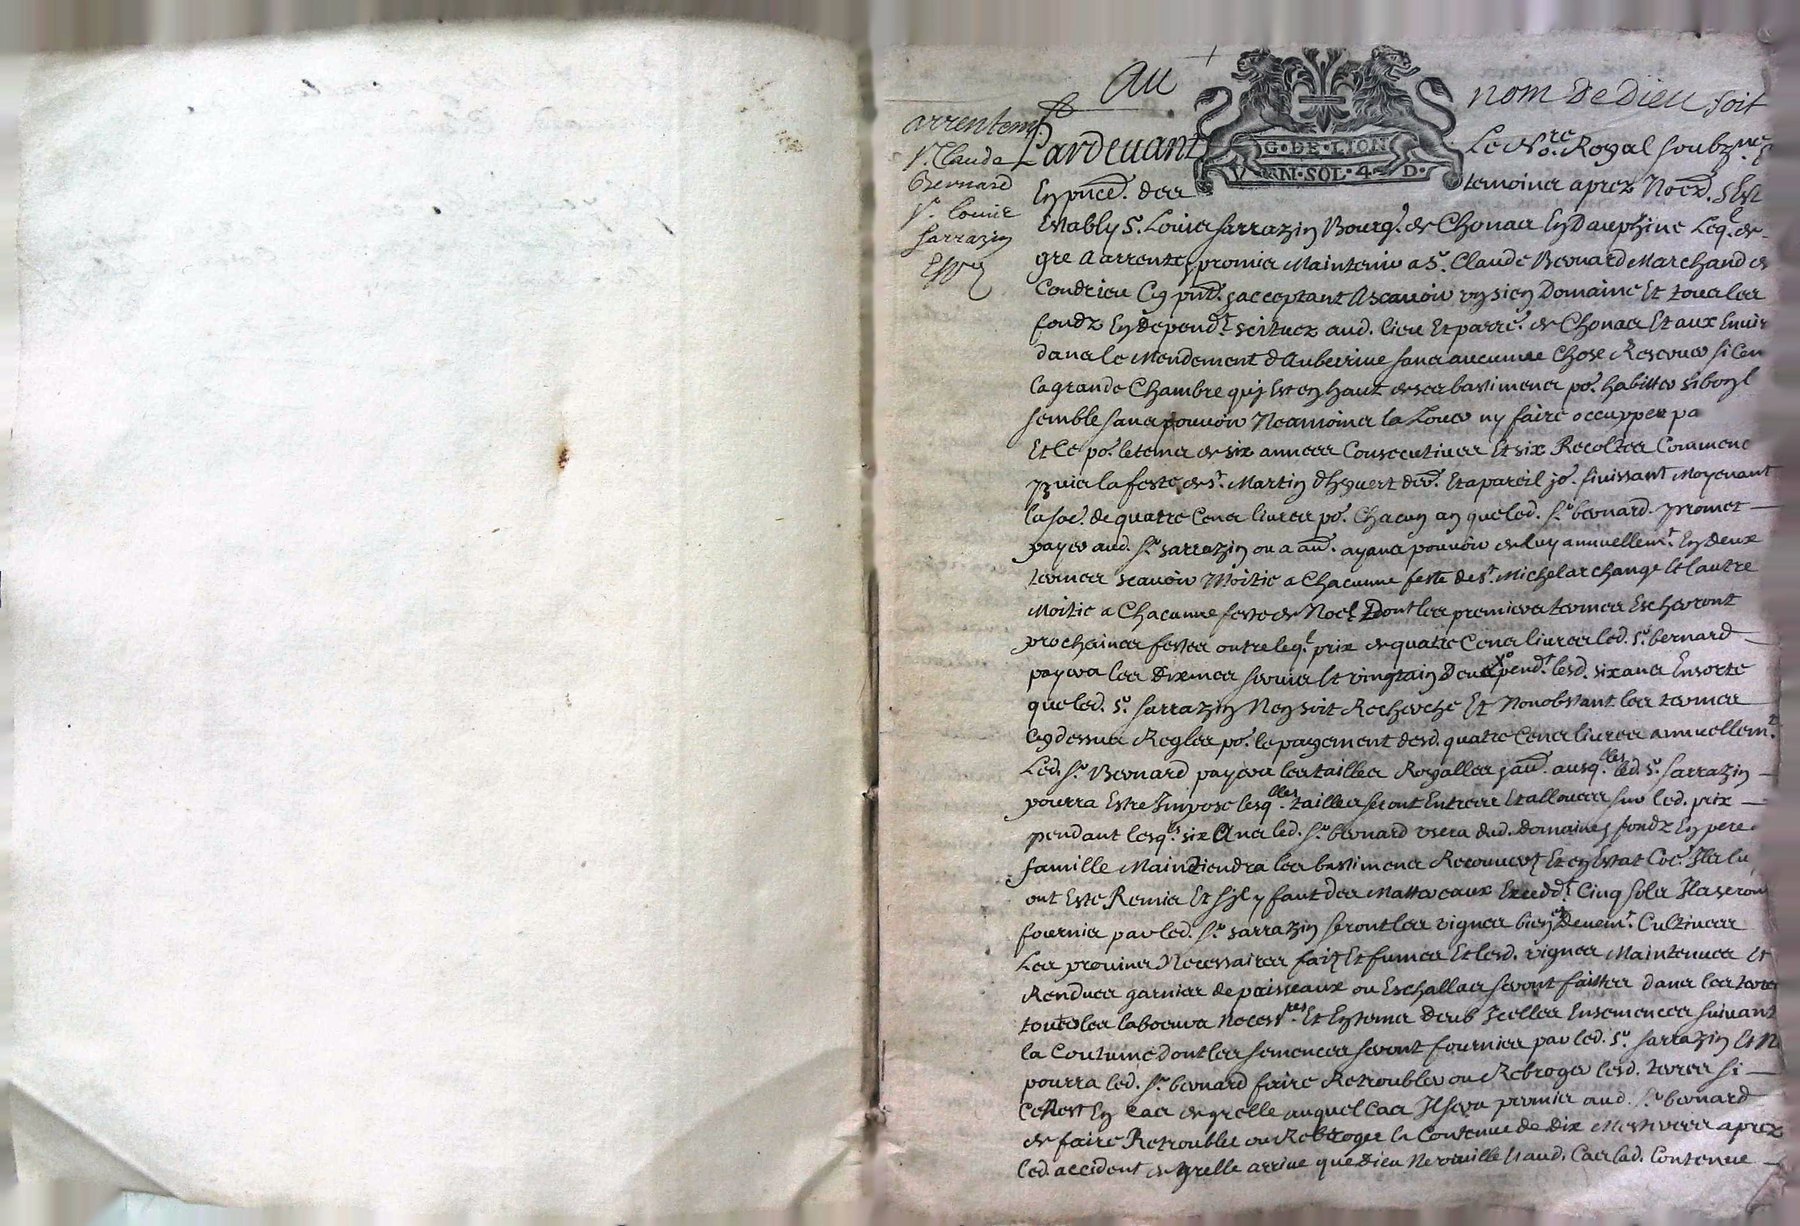 Au nom de Dieu soit
arrentemt
Sr. Claude
Bernard
Sr. Louis
Sarrazin
G. DE LION
N. SOL. 4. D.
Pardevant Le Nore. Royal soubzne
En pnce. des temoins apres Noes. s'est
Estably Sr. Louis Sarrazin Bourgs. de Chonas En Dauphine Leql. de
gre a arrente et promis Maintenir a Sr. Claude Bernard Marchand de
Condrieu Cy pnt. et acceptant Ascavoir un sien Domaine Et tous les
fondz En dependt. scituez aud. lieu Et parre. de Chonas Et aux Envir
dans le Mendement d'Auberive sans aucunne Chose Reserver si Cen
La grande Chambre quy Est en haut de ses bastimens po. habitter si bon l
semble sans pouvoir Neamoins la Louer ny faire occupper pa
Et Ce po. le tems de six annees Consecutives Et six Recoltes Commenc
puis la feste de St. Martin d'hyvert der. Et a pareil jo. finissant Moyenant
la soe. de quatre Cens livres po. Chacun an que led. Sr. bernard promet
payer aud. Sr. Sarrazin ou a au. ayans pouvoir de luy annuellemt. En deux
termes scavoir Moitie a Chacunne feste de St. Michel archange Et l'autre
Moitie a Chacunne feste de Noel Dont les premiers termes Escherront
prochaines festes outre leql. prix de quatre Cens livres led. Sr. bernard
payera les Dixmes servis Et vingtain deus pendt. lesd. six ans Ensorte
que led. Sr. Sarrazin Nen soit Recherche Et Nonobstant les termes
Cy dessus Regles po. le payement desd. quatre Cens livres annuellemt.
Led. Sr. Bernard payera les tailles Royalles et au. ausqlles led. Sr. Sarrazin
pourra Estre Impose lesqlles. tailles seront Entrees Et allouees sur led. prix
pendant lesqls. six Ans led. Sr. bernard usera dud. domaine et fondz En pere
famille Maintiendra les bastimens Recouverts Et en Estat Coe. Ils lu
ont Este Remis Et s'il y faut des Matteraux Excedt. Cinq sols Ils seron
fournis par led. Sr. Sarrazin seront les vignes bien et Deuemt. Cultivees
Les provins Necessaires faits Et fumes Et lesd. vignes Maintenues Et
Rendues garnies de paisseaux ou Eschallas seront faittes dans les terres
touttes les labeurs necessres. Et En tems deub Icelles Ensemencees suivant
la Coutume dont les semences seront fournies par led. Sr. Sarrazin Et N
pourra led. Sr. bernard faire Retroubler ou Rebroger lesd. terres si
Ce N'est En Cas de grelle auquel Cas Il sera promis aud. Sr. bernard
de faire Retroubler ou Rebroger la Contenue de dix Mestieres apres
led. accident de grelle arrive que Dieu Ne veuille Et aud. Cas lad. Contenue